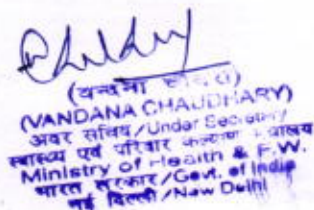 (वन्दना चौधरी)
(VANDANA CHAUDHARY)
अवर सचिव/Under Secretary
स्वास्थ्य एवं परिवार कल्याण मंत्रालय
Ministry of Health & F.W.
भारत सरकार/Govt. of India
नई दिल्ली/New Delhi